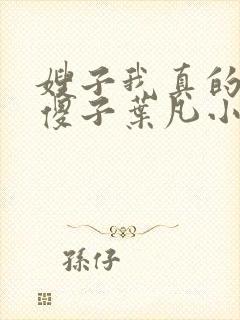 嫂子我真的
傻子葉凡小
孫仔